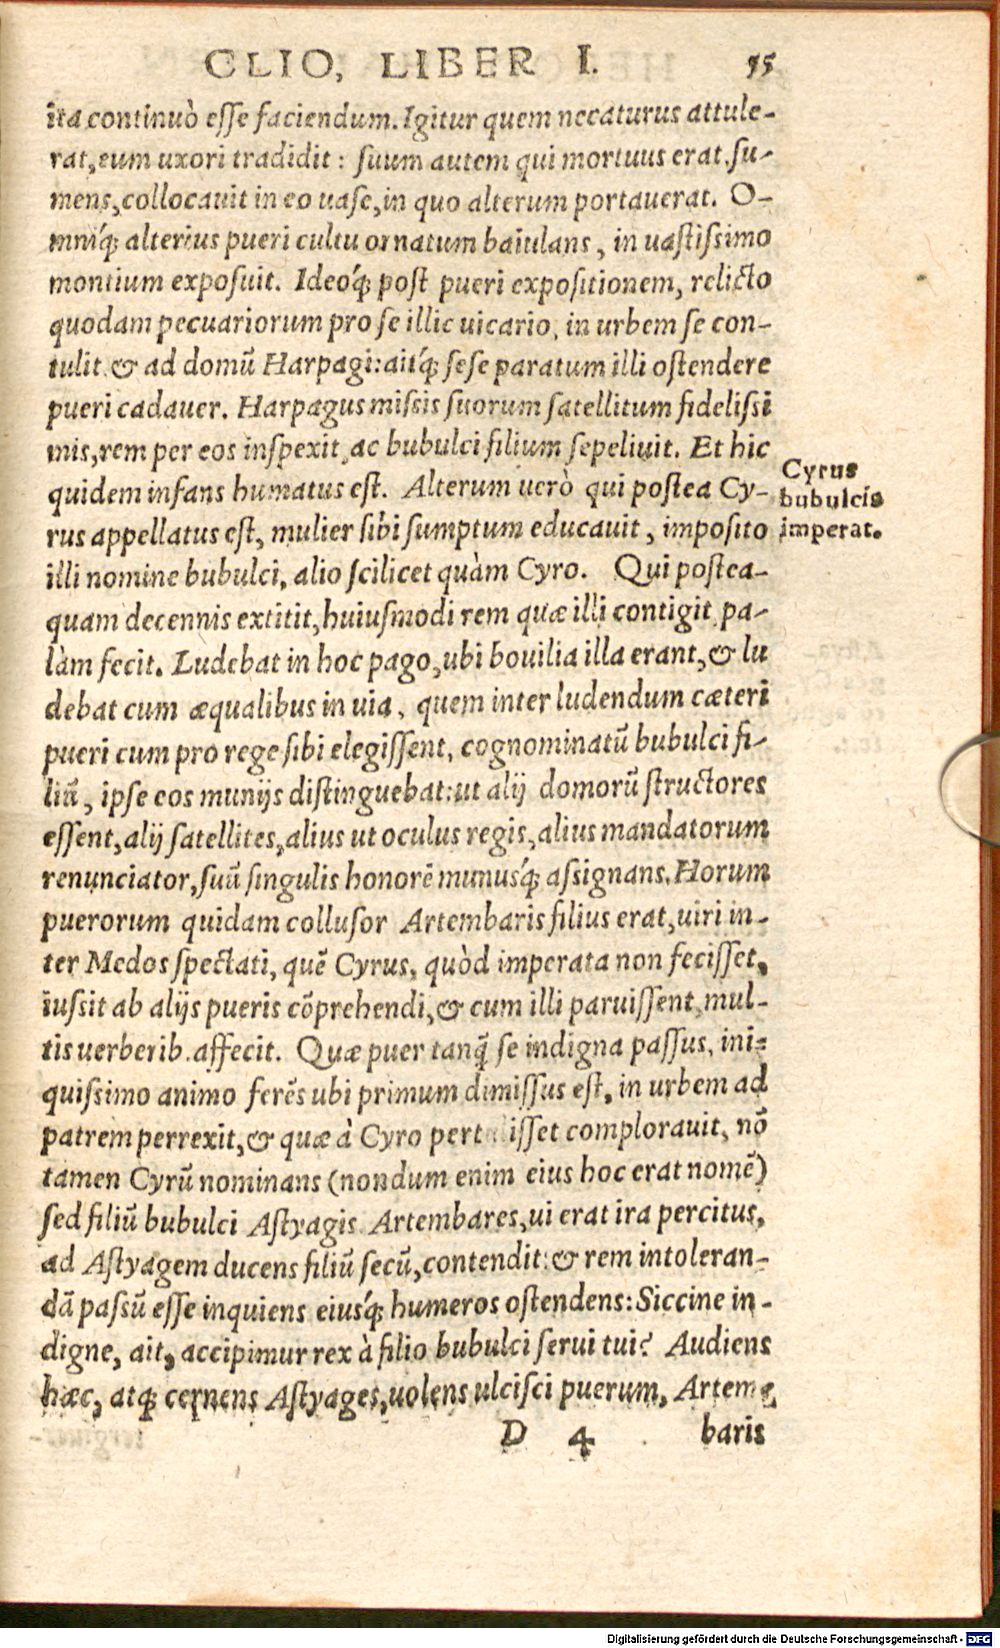 CLIO, LIBER I. 55
ita continuò esse faciendum. Igitur quem necaturus attule-
rat, eum uxori tradidit: suum autem qui mortuus erat, su-
mens, collocauit in eo uase, in quo alterum portauerat. O-
mniq́; alterius pueri cultu ornatum baiulans, in uastissimo
montium exposuit. Ideoq́; post pueri expositionem, relicto
quodam pecuariorum pro se illic uicario, in urbem se con-
tulit & ad domũ Harpagi: aitq́; sese paratum illi ostendere
pueri cadauer. Harpagus missis suorum satellitum fidelissi
mis, rem per eos inspexit, ac bubulci filium sepeliuit. Et hic
quidem infans humatus est. Alterum uerò qui postea Cy-
rus appellatus est, mulier sibi sumptum educauit, imposito
illi nomine bubulci, alio scilicet quàm Cyro. Qui postea-
quam decennis extitit, huiusmodi rem quæ illi contigit pa-
làm fecit. Ludebat in hoc pago, ubi bouilia illa erant, & lu
debat cum æqualibus in uia, quem inter ludendum cæteri
pueri cum pro rege sibi elegissent, cognominatũ bubulci fi-
liũ, ipse eos munijs distinguebat: ut alij domorũ structores
essent, alij satellites, alius ut oculus regis, alius mandatorum
renunciator, suũ singulis honorẽ munusq́; assignans. Horum
puerorum quidam collusor Artembaris filius erat, uiri in-
ter Medos spectati, quẽ Cyrus, quòd imperata non fecisset,
iussit ab alijs pueris cõprehendi, & cum illi paruissent, mul-
tis uerberib. affecit. Quæ puer tanq̃ se indigna passus, ini-
quissimo animo ferẽs ubi primum dimissus est, in urbem ad
patrem perrexit, & quæ à Cyro pertulisset complorauit, nõ
tamen Cyrũ nominans (nondum enim eius hoc erat nomẽ)
sed filiũ bubulci Astyagis. Artembares, ui erat ira percitus,
ad Astyagem ducens filiũ secũ, contendit: & rem intoleran-
dã passũ esse inquiens eiusq́; humeros ostendens: Siccine in-
digne, ait, accipimur rex à filio bubulci serui tui? Audiens
hæc, atq; cernens Astyages, uolens ulcisci puerum, Artem-
D 4 baris
Cyrus
bubulcis
imperat.
Digitalisierung gefördert durch die Deutsche Forschungsgemeinschaft - DFG